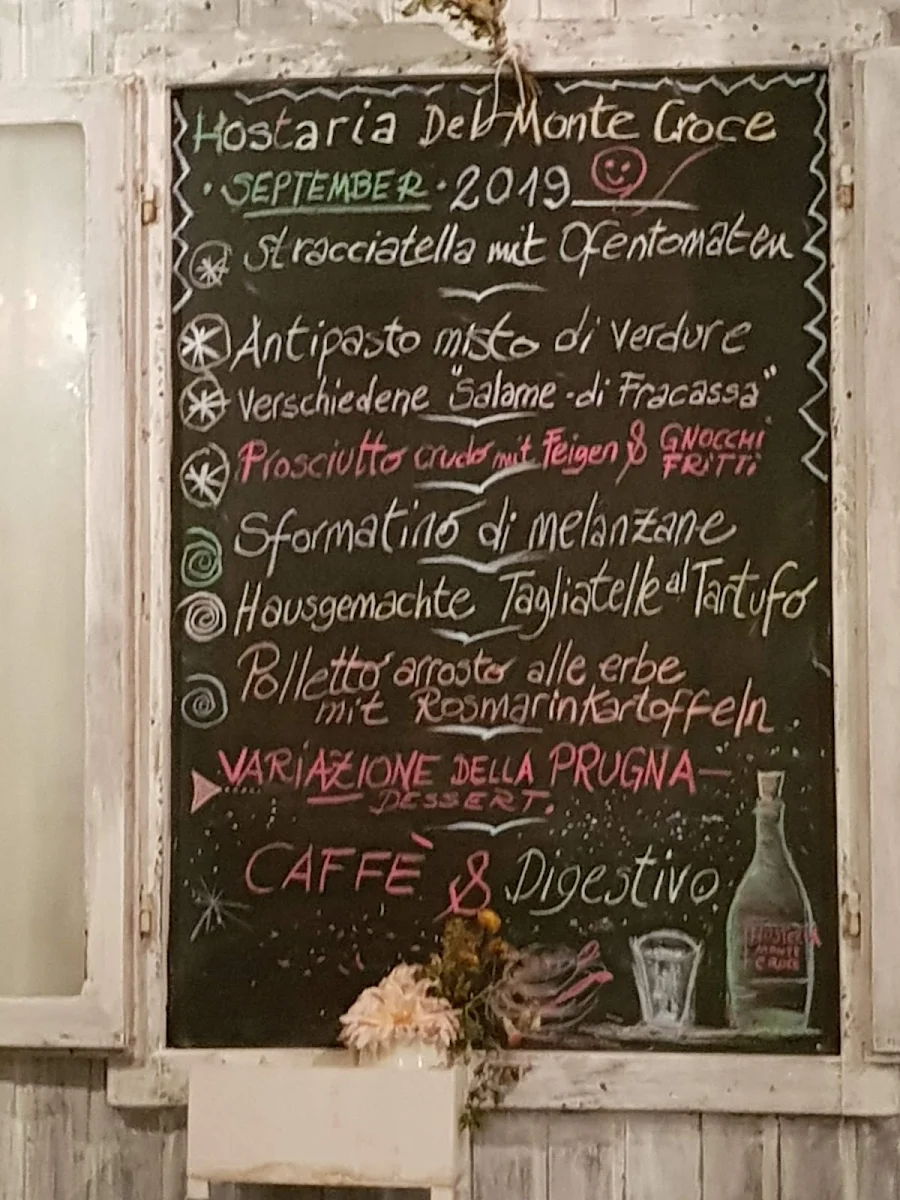 Hostaria Del Monte Croce
· SEPTEMBER · 2019
Stracciatella mit Ofentomaten
Antipasto misto di verdure
Verschiedene "Salame di Fracassa"
Prosciutto crudo mit Feigen & GNOCCHI
FRITTI
Sformatino di melanzane
Hausgemachte Tagliatelle al Tartufo
Polletto arrosto alle erbe
mit Rosmarinkartoffeln.
VARIAZIONE DELLA PRUGNA
DESSERT.
CAFFÈ & Digestivo
MONTE
CROCE